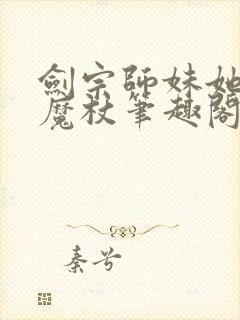 劍宗師妹她
魔杖筆趣閣
秦兮